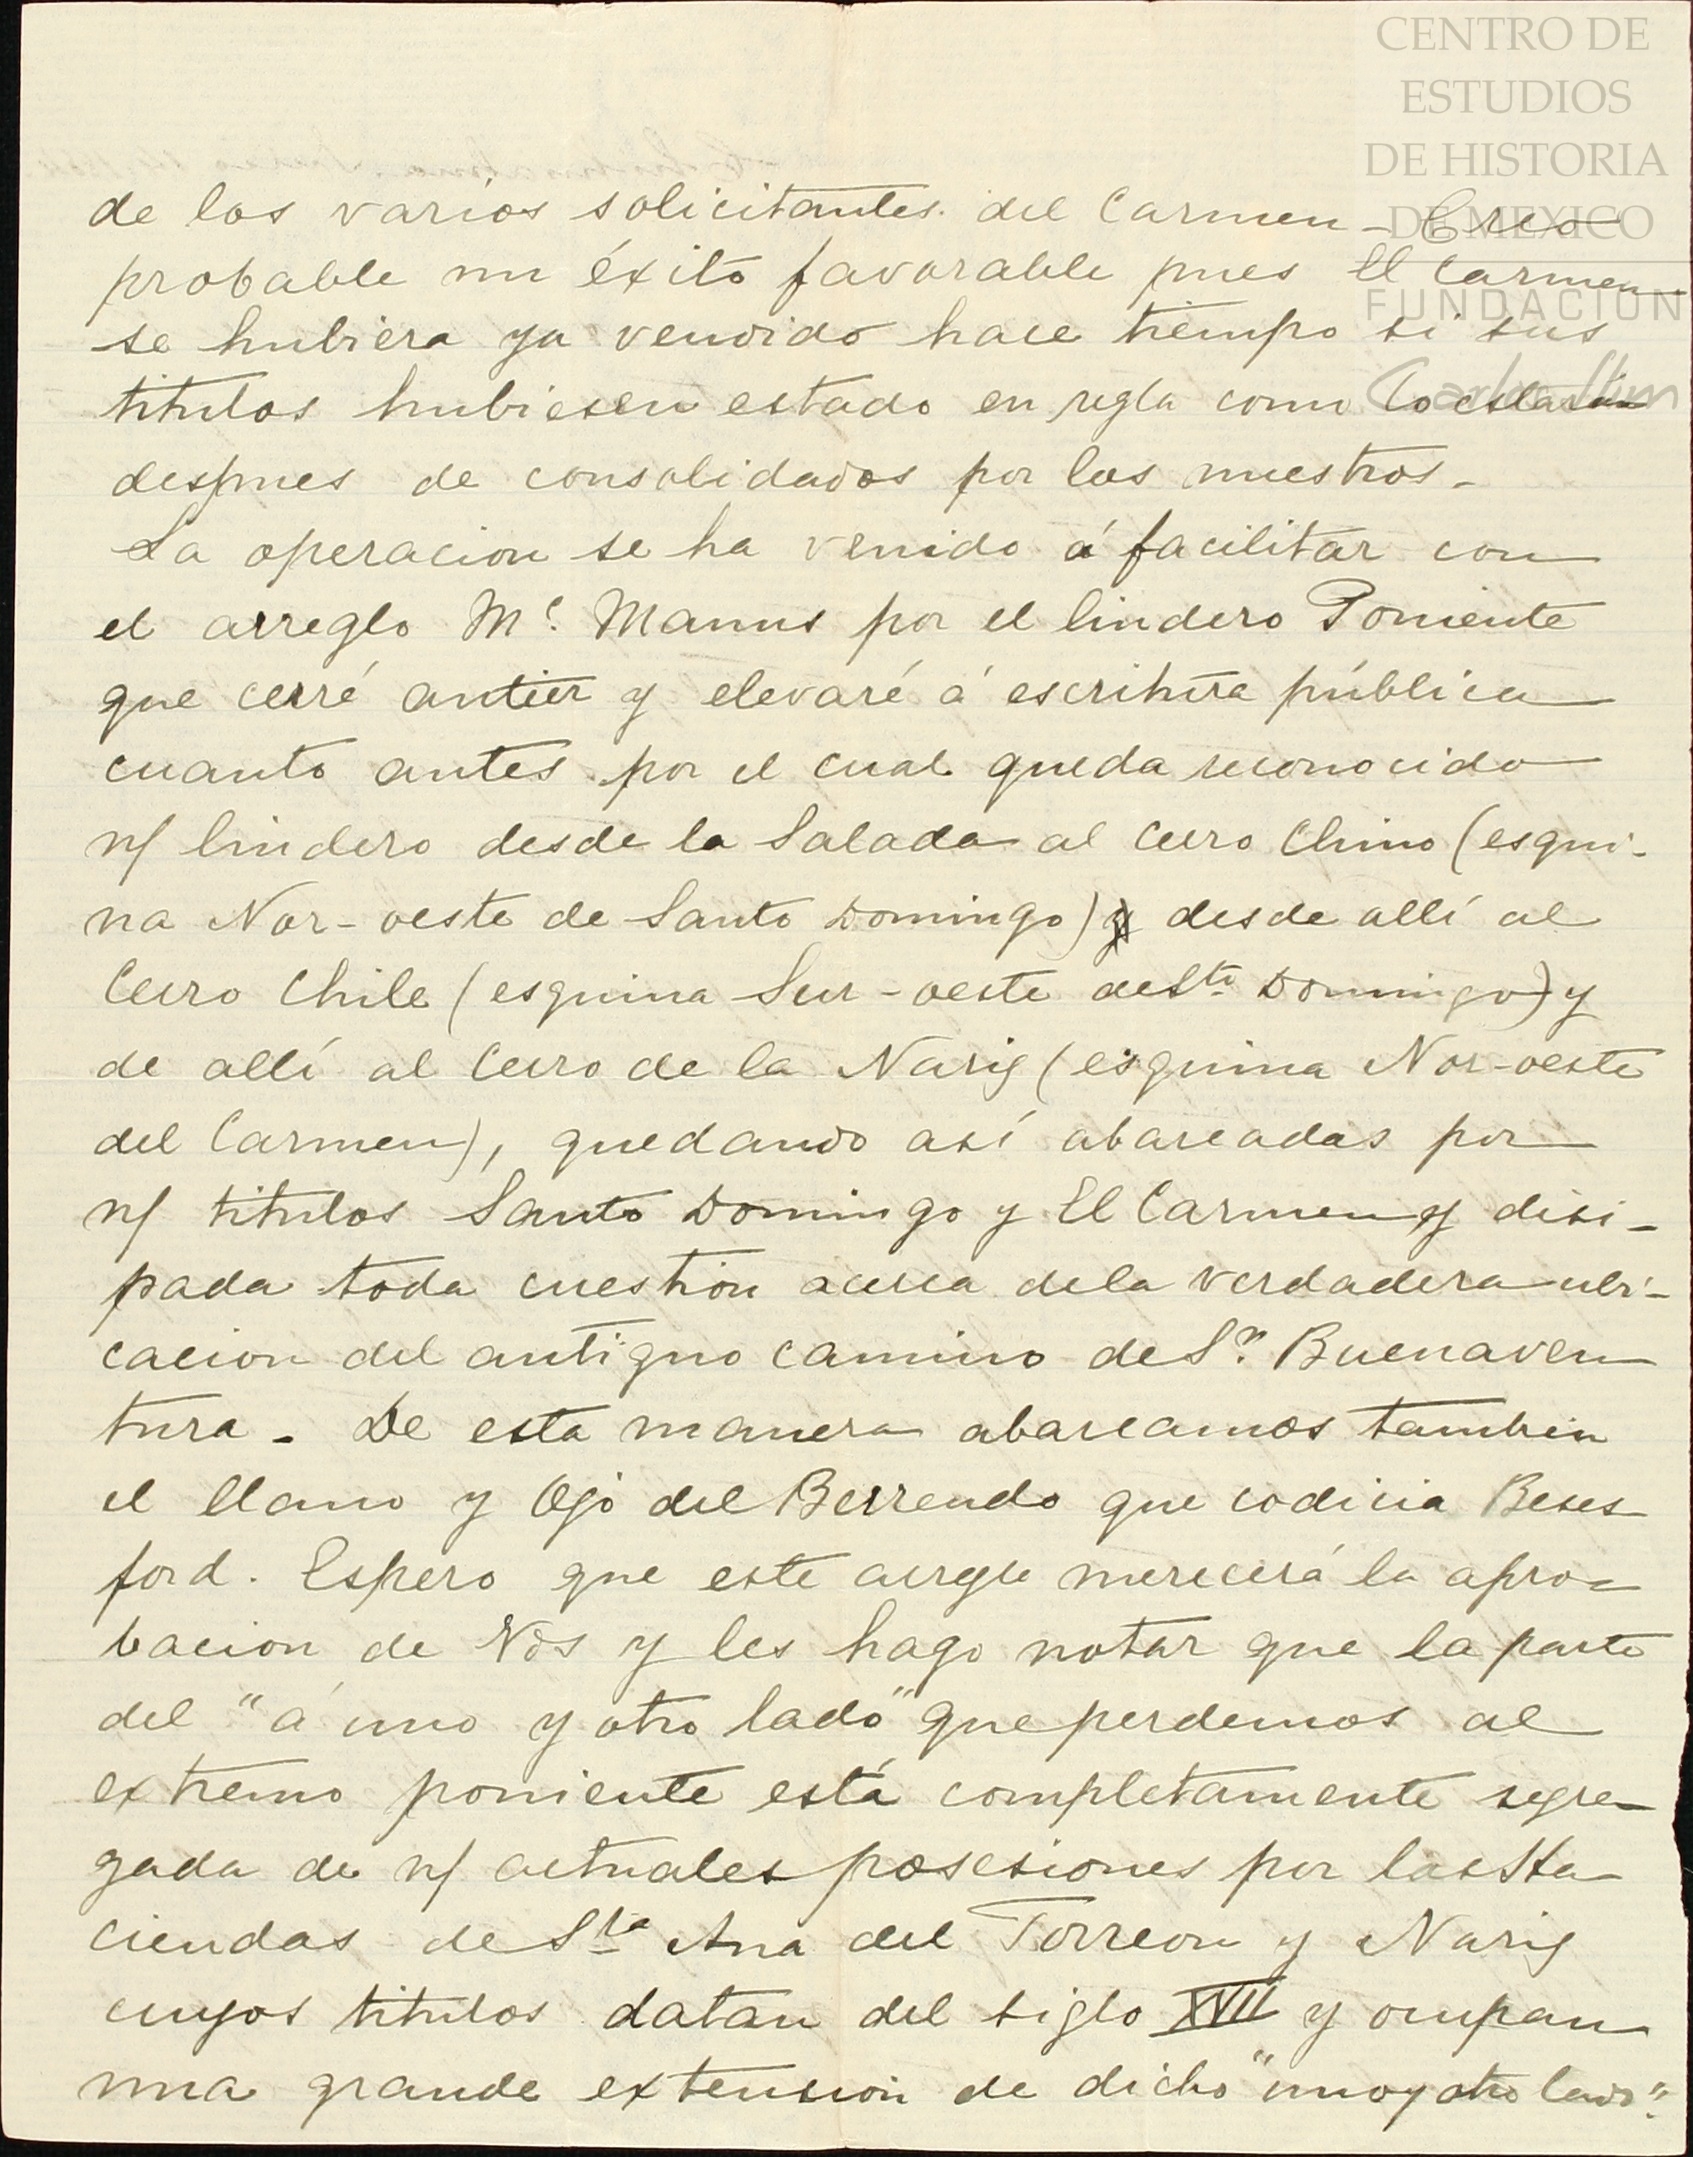 CENTRO DE
ESTUDIOS
DE HISTORIA
DE MEXICO
FUNDACIÓN
Carlos Slim
de los varios solicitantes del Carmen - Creo
probable un éxito favorable pues El Carmen
se hubiera ya vendido hace tiempo si sus
titulos hubiesen estado en regla como lo estarán
despues de consolidados por los nuestros.
La operacion se ha venido á facilitar con
el arreglo Mc. Manus por el lindero Poniente
que cerré antier y elevaré á escritura pública
cuanto antes por el cual queda reconocido
n/ lindero desde la Salada al Cerro Chino (esqui-
na Nor-oeste de Santo Domingo) y desde allí al
Cerro Chile (esquina Sur-oeste de Sto Domingo) y
de allí al Cerro de la Nariz (esquina Nor-oeste
del Carmen), quedando así abarcadas por
n/ titulos Santo Domingo y El Carmen y disi-
pada toda cuestión acerca de la verdadera ubi-
cacion del antiguo camino de Sn. Buenaven
tura. De esta manera abarcamos tambien
el llano y Ojo del Berrendo que codicia Beres-
ford. Espero que este arreglo merecerá la apro-
bacion de Vds y les hago notar que la parte
del "á uno y otro lado" que perdemos al
extremo poniente está completamente segre-
gada de n/ actuales posesiones por las Ha-
ciendas de Sta Ana del Torreon y Nariz
cuyos titulos datan del siglo XVII y ocupan
una grande extensión de dicho "uno y otro lado".